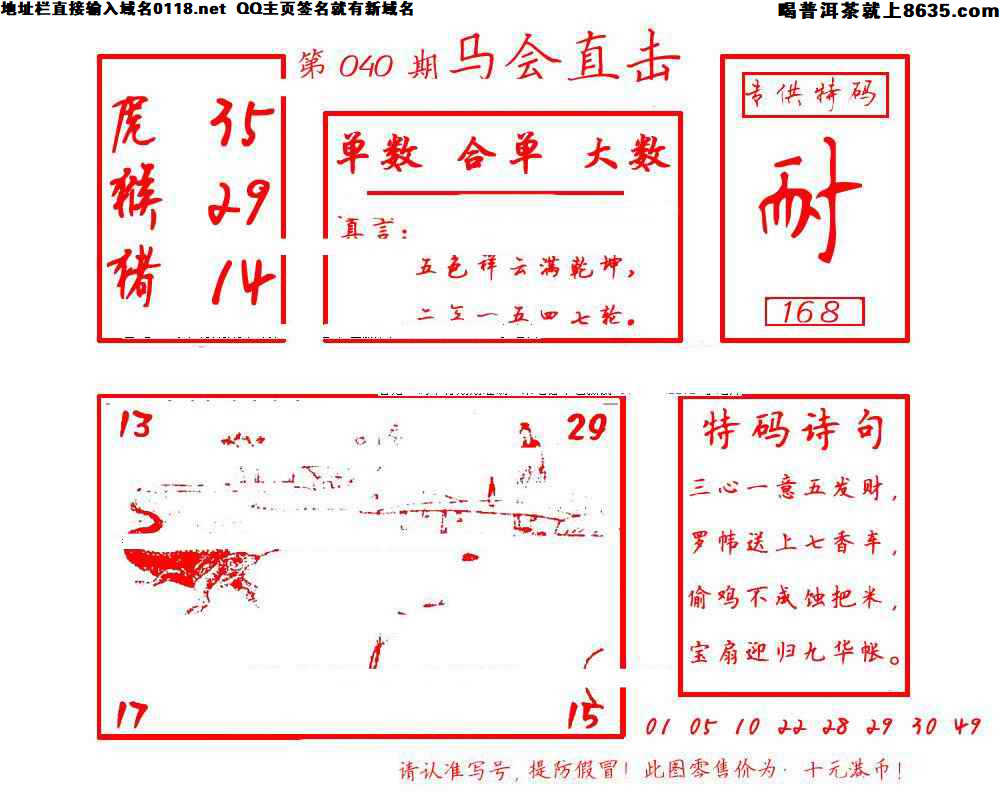 地址栏直接输入域名0118.net QQ主页签名就有新域名
喝普洱茶就上8635.com
第 040 期 马会直击
虎 35
猴 29
猪 14
单数 合单 大数
真言：
五色祥云满乾坤，
二三一五四七轮。
专供特码
耐
168
13
29
17
15
特码诗句
三心一意五发财，
罗帏送上七香车，
偷鸡不成蚀把米，
宝扇迎归九华帐。
01 05 10 22 28 29 30 49
请认准写号，提防假冒！此图零售价为：十元港币！